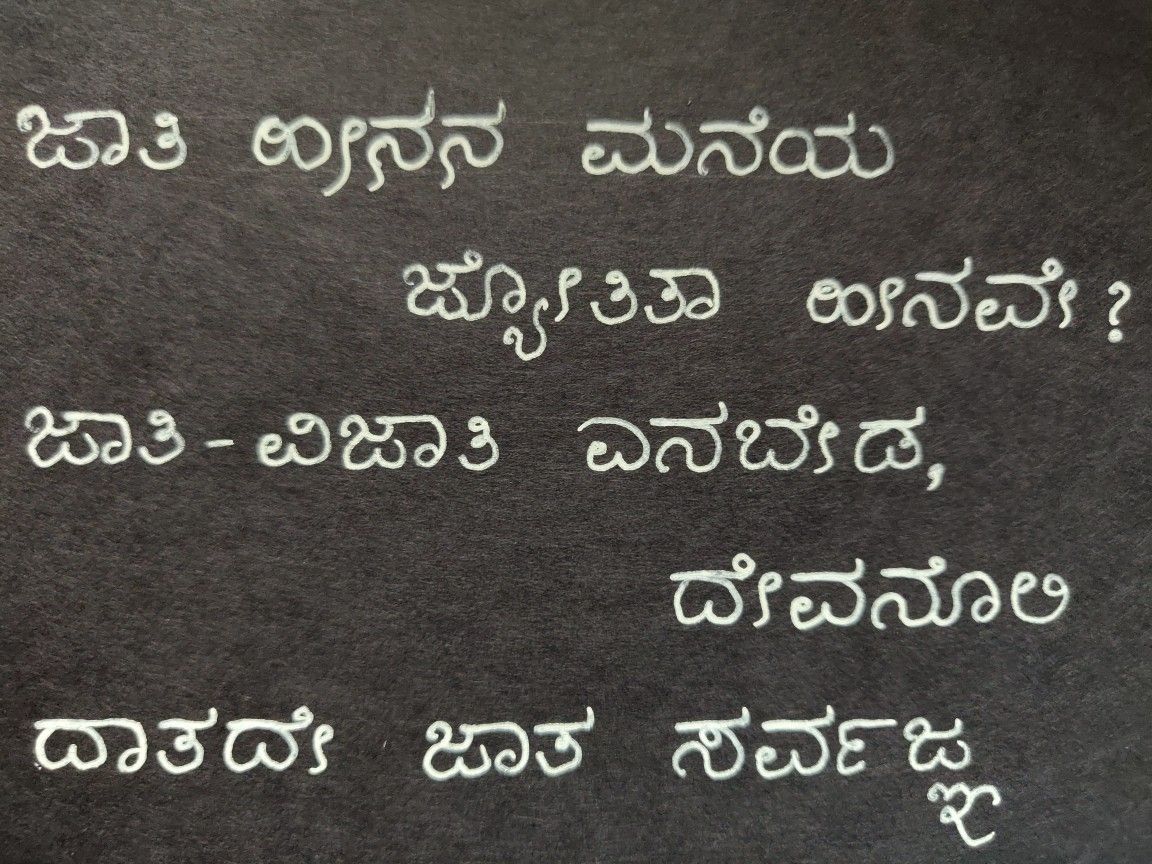 ಜಾತಿ ಹೀನನ ಮನೆಯ
ಜ್ಯೋತಿತಾ ಹೀನವೇ?
ಜಾತಿ-ವಿಜಾತಿ ಎನಬೇಡ,
ದೇವನೊಲಿ
ದಾತದೇ ಜಾತ ಸರ್ವಜ್ಞ